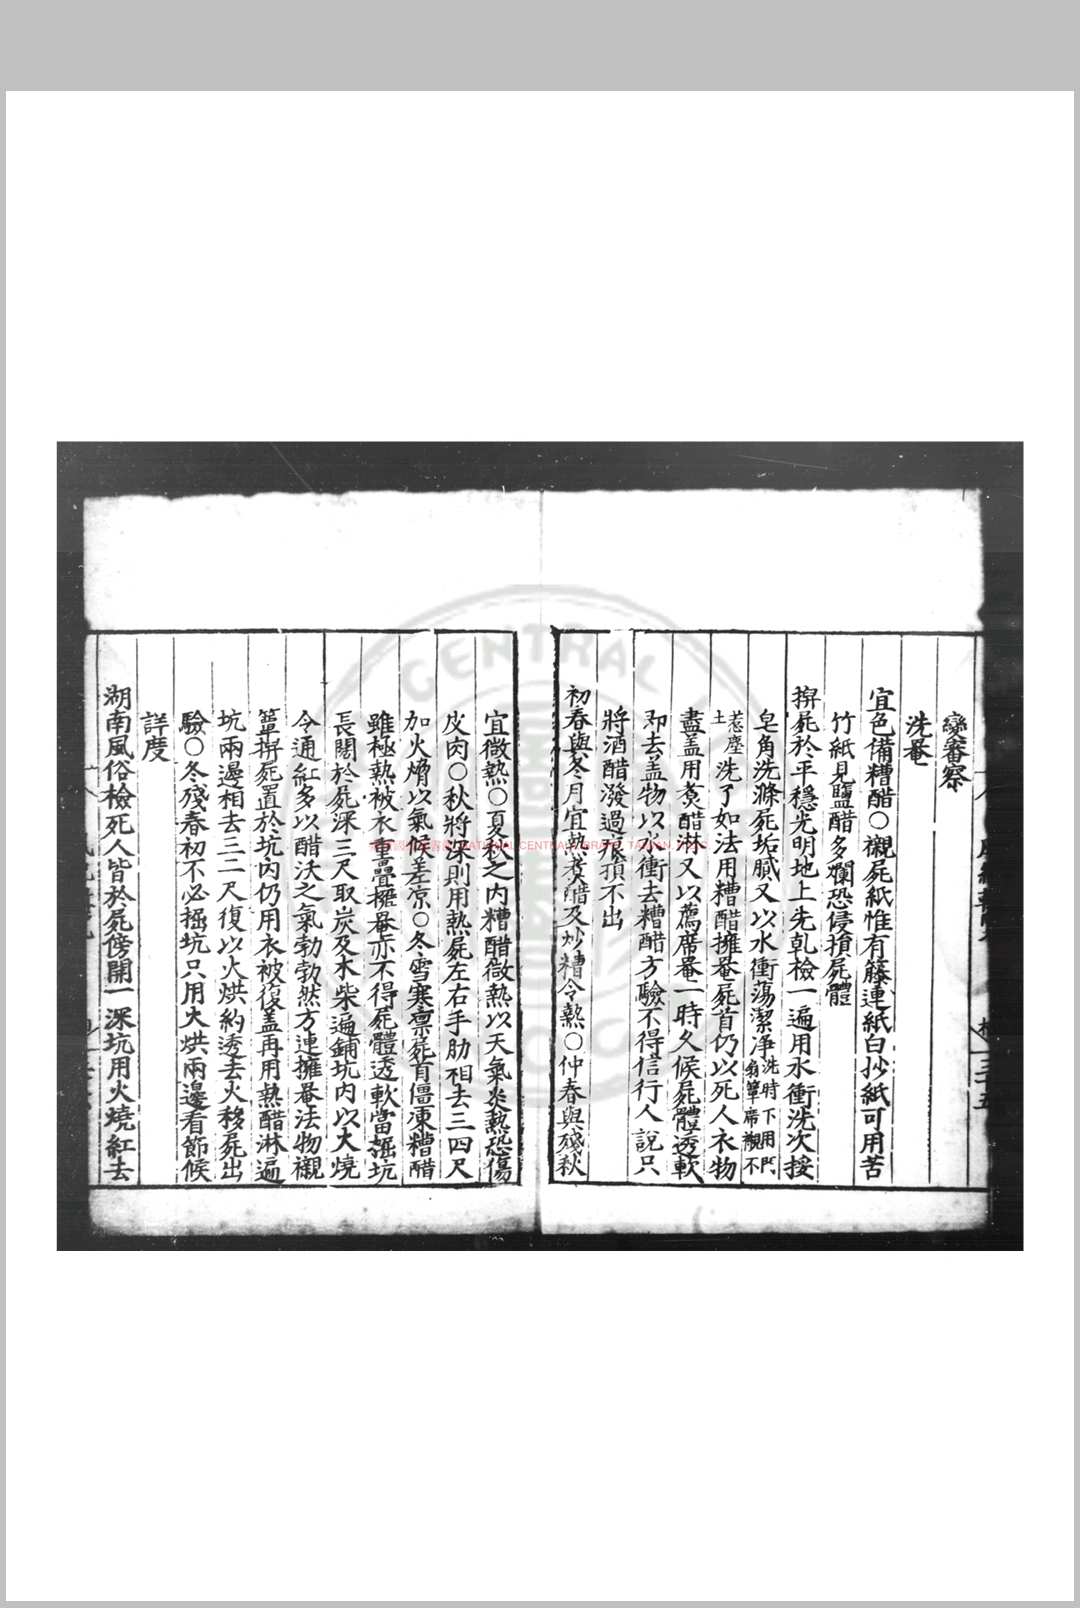 變審察
洗罨
宜色備糟醋○襯屍紙惟有藤連紙白抄紙可用若
竹紙見鹽醋多爛恐侵損屍體
搿屍於平穩光明地上先乹檢一遍用水衝洗次挼
皂角洗滌屍垢膩又以水衝蕩潔净洗時下用門扇簟席襯不
惹塵土洗了如法用糟醋擁罨屍首仍以死人衣物
盡盖用煑醋淋又以薦席罨一時久候屍體透軟
即去盖物以水衝去糟醋方驗不得信行人說只
將酒醋潑過痕損不出
初春與冬月宜熱煑醋及炒糟令熱○仲春與殘秋
宜微熱○夏秋之内糟醋微熱以天氣炎熱恐傷
皮肉○秋將深則用熱屍左右手肋相去三四尺
加火熁以氣候差凉○冬雪寒凛屍首僵凍糟醋
雖極熱被衣重疊擁罨亦不得屍體透軟當掘坑
長闊於屍深三尺取炭及木柴遍鋪坑内以火燒
令通紅多以醋沃之氣勃勃然方連擁罨法物襯
簟搿屍置於坑内仍用衣被復盖再用熱醋淋遍
坑兩邉相去三二尺復以火烘約透去火移屍出
驗○冬殘春初不必掘坑只用火烘兩邉看節候
詳度
湖南風俗檢死人皆於屍傍開一深坑用火燒紅去